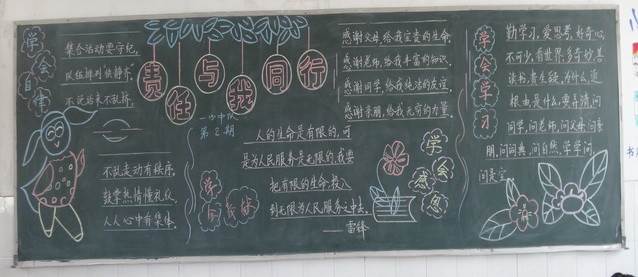 学会自律
集合活动要守纪,
队伍排列"快静齐"
不说话来不乱挤。
不乱走动有秩序,
鼓掌热情懂礼仪,
人人心中有集体。
责任与我同行
第2期
学会
人的生命是有限的,可
是为人民服务是无限的,我要
把有限的生命,投入
到无限为人民服务之中去。
——雷锋
感谢父母,给我宝贵的生命
感谢老师,给我丰富的知识,
感谢同学,给我纯洁的友谊,
感谢亲朋,给我无穷的力量。
学会感恩
学会学习
勤学习,爱思考,好奇心,
不可少,看世界,多奇妙,善
读书,贵生疑,为什么,追
根由,是什么,要弄清,问
同学,问老师,问父母,问亲
朋,问词典,问自然,学学问
问是宝